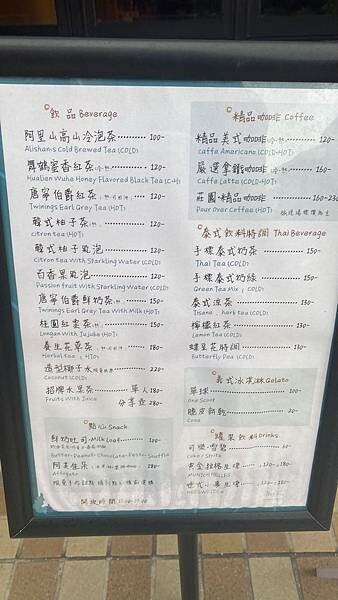 飲 品 Beverage
阿里山高山冷泡茶 100-
Alishan's Cold Brewed Tea (COLD)
舞鶴蜜香紅茶 120-
Hualien Wuhe Honey Flavored Black Tea (C+H)
唐寧伯爵紅茶 120-
Twinings Earl Grey Tea (HOT)
韓式柚子茶 150-
citron tea (HOT)
韓式柚子氣泡 120-
citron tea With Sparkling Water (COLD)
百香果氣泡 120-
Passion fruit With Sparkling Water (COLD)
唐寧伯爵鮮奶茶 150-
Twinings Earl Grey Tea With Milk (HOT)
桂圓紅棗茶 150-
Longan With Jujube (HOT)
養生花草茶 180-
Herbal tea (HOT)
造型椰子水 220-
Coconut (COLD)
招牌水果茶 單人 180-
Fruits With Juice 分享壺 280-
點心 Snack
鮮奶吐司·Milk loaf 100-
Butter·Peanut·Chocolate·Pesto·Souffle
阿芙佳朵 180-
Affogato
開放時間
精品咖啡 Coffee
精品美式咖啡 120-
caffe Americano (COLD+HOT)
嚴選拿鐵咖啡 160-
Caffe Latte (COLD+HOT)
莊園·精品咖啡 160-230
Pour Over Coffee (HOT)
泰式飲料特調 Thai Beverage
手標泰式奶茶 150-
Thai Tea (COLD)
手標泰式奶綠 150-
Green Tea Mix (COLD)
泰式涼茶 130-
Tisane, herb tea (COLD)
檸檬紅茶 130-
Lemon Tea (COLD)
蝶豆花特調 130-
Butterfly Pea (COLD)
義式冰淇淋 Gelato
單球 100-
One Scoop
脆皮餅乾 20-
Cone
罐裝飲料 Drinks
可樂·雪碧 60-
Coke / Sprite